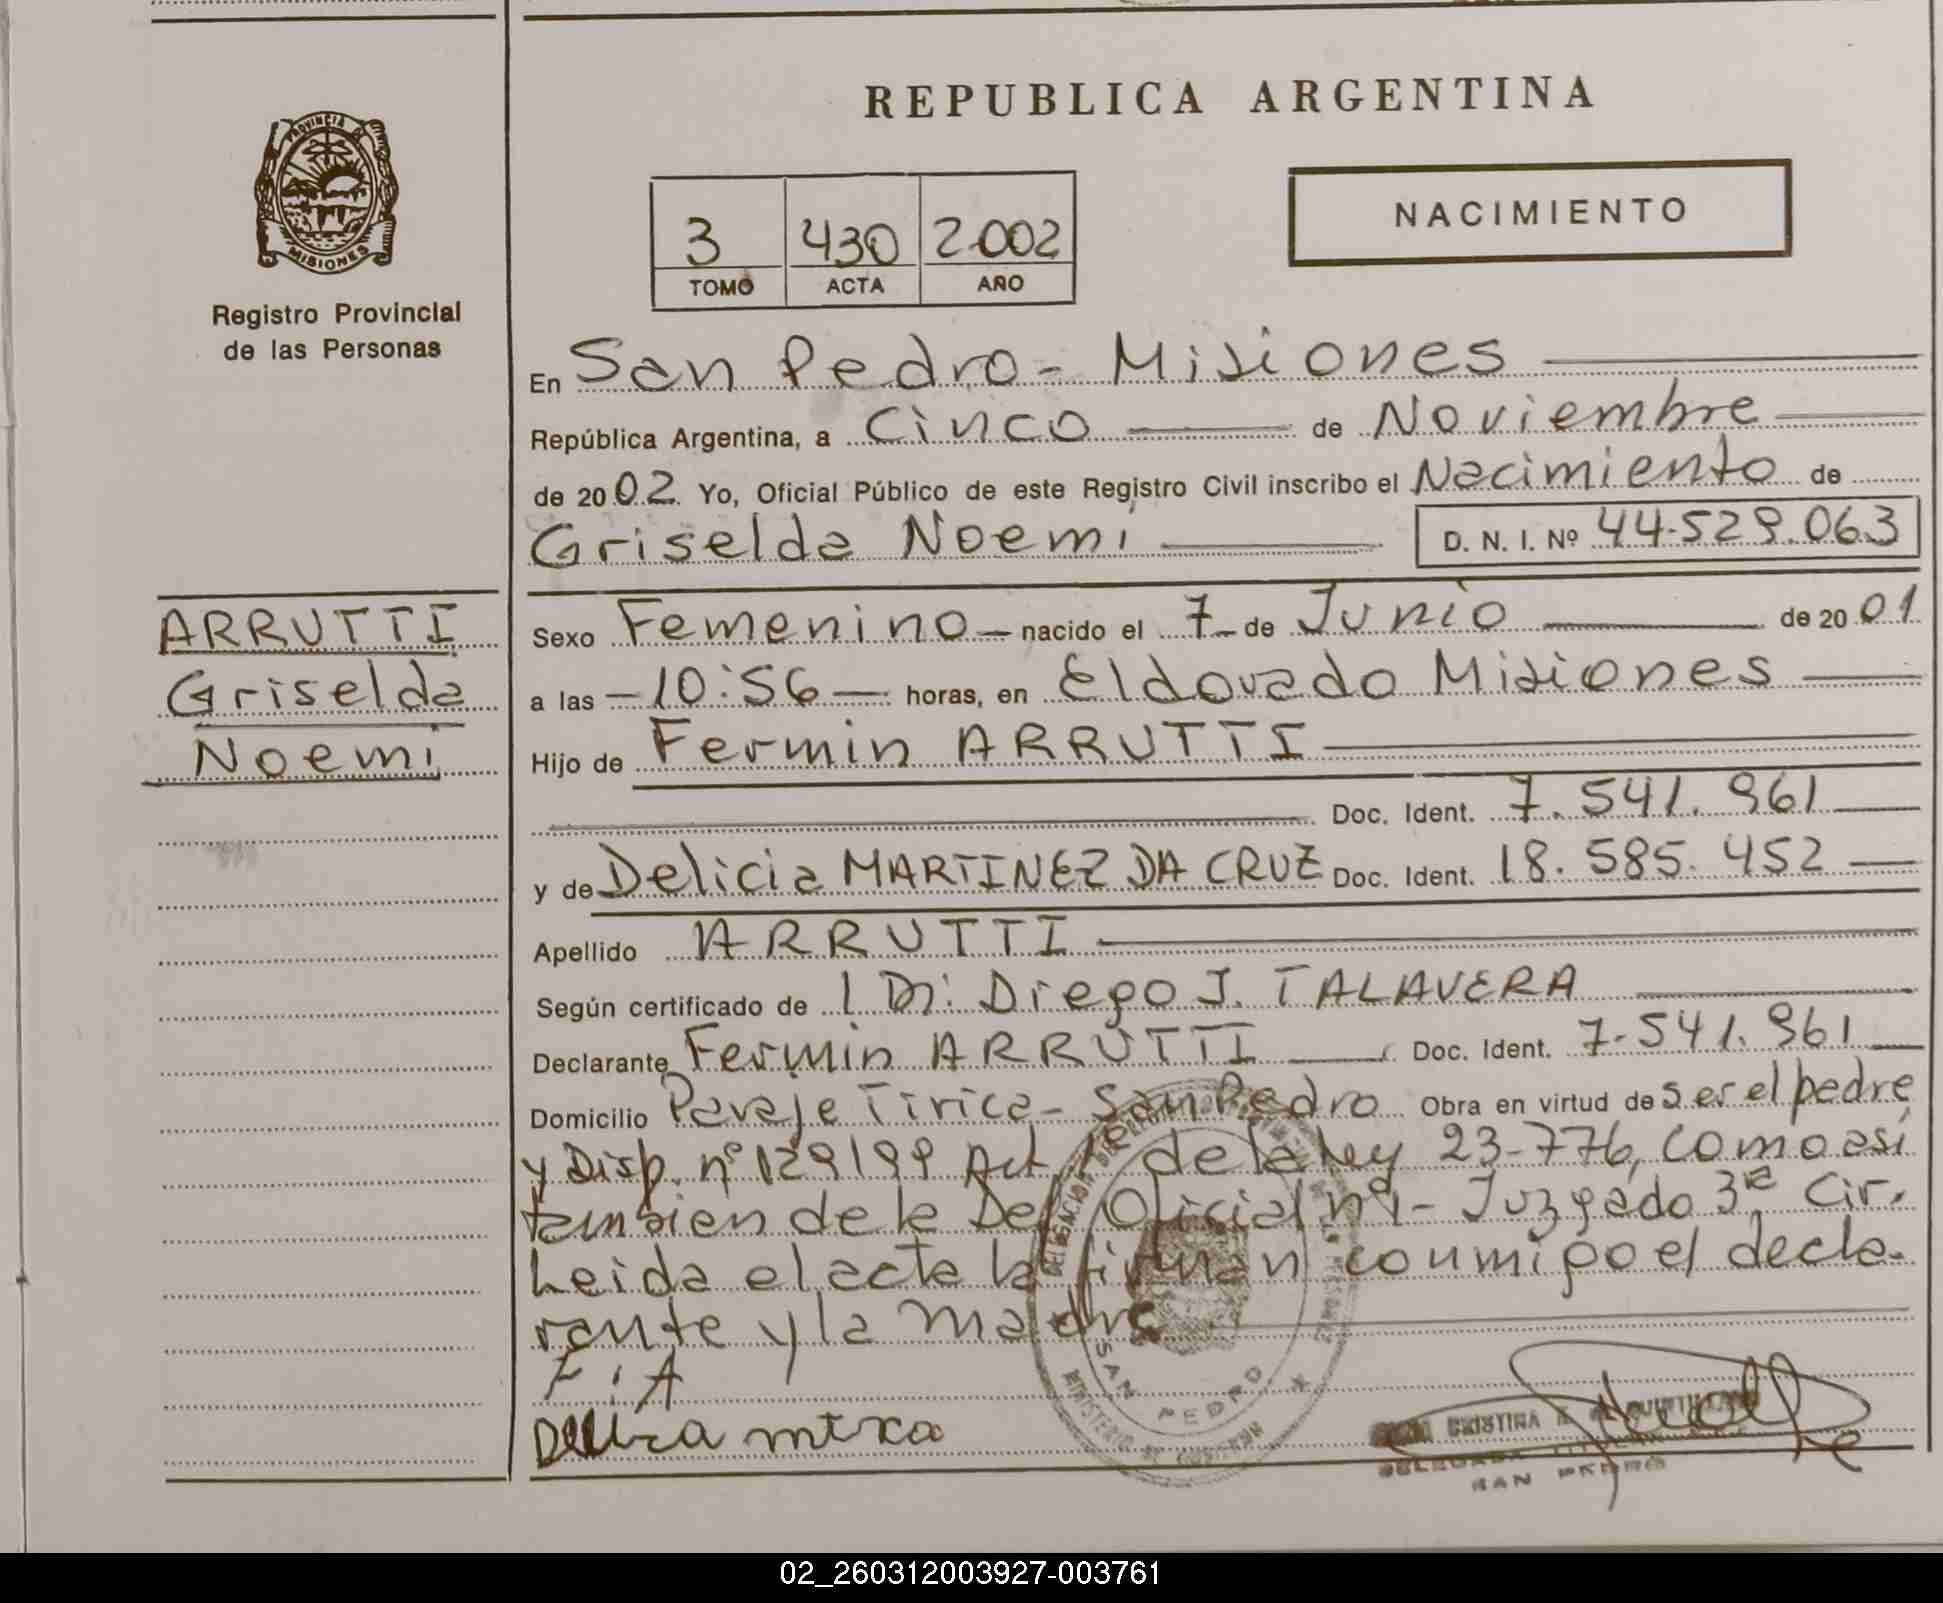 REPUBLICA ARGENTINA
PROVINCIA DE
MISIONES
Registro Provincial
de las Personas
3 430 2.002
TOMO ACTA AÑO
NACIMIENTO
En San Pedro - Misiones
República Argentina, a Cinco de Noviembre
de 2002. Yo, Oficial Público de este Registro Civil inscribo el Nacimiento de
Griselda Noemi D. N. I. Nº 44.529.063
ARRUTTI
Griselda
Noemi
Sexo Femenino nacido el 7 de Junio de 2001
a las 10:56 horas, en Eldorado Misiones
Hijo de Fermin ARRUTTI
Doc. Ident. 7.541.961
y de Delicia MARTINEZ DA CRUZ Doc. Ident. 18.585.452
Apellido ARRUTTI
Según certificado de l Dr. Diego J. TALAVERA
Declarante Fermin ARRUTTI Doc. Ident. 7.541.961
Domicilio Paraje Tirica - San Pedro Obra en virtud de ser el padre
y Disp. nº 129/99 Art de la Ley 23.776, como asi
tambien de la Def Oficial nº 1 - Juzgado 3ra Cir.
Leida el acta la firman conmigo el decla-
rante y la madre
F. A
mtxa
SAN PEDRO
MINISTERIO DE GOBIERNO
CRISTINA
SAN PEDRO
02_260312003927-003761